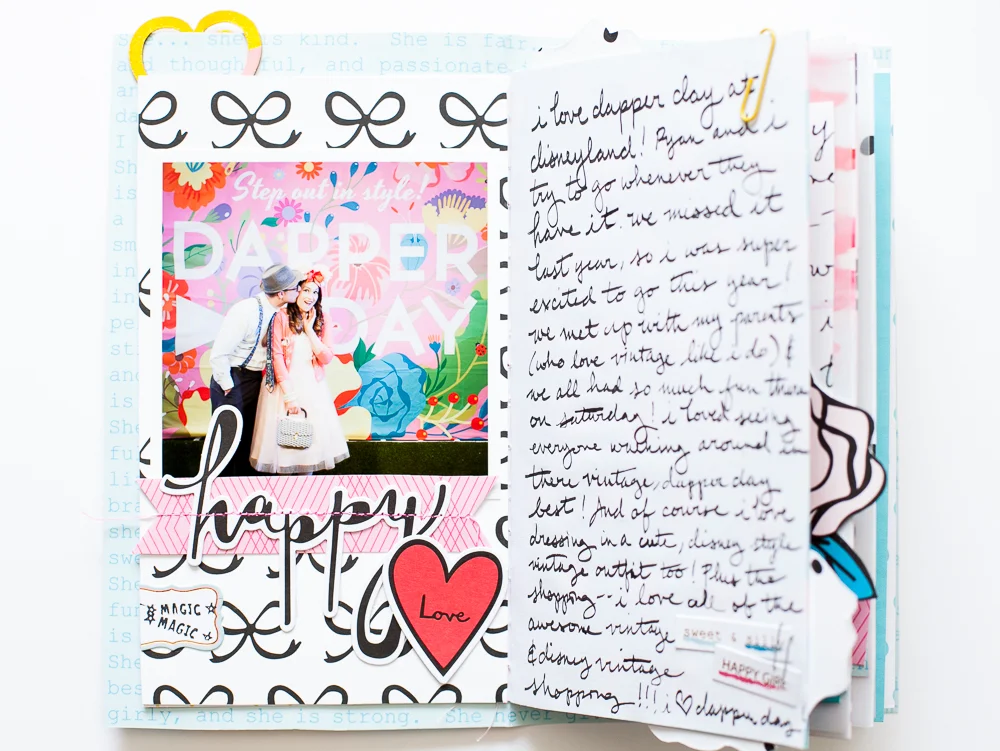 She... she is kind. She is fair,
and thoughtful, and passionate
Step out in style!
DAPPER
DAY
happy
Love
MAGIC
MAGIC
girly, and she is strong. She never gi
i love dapper day at
disneyland! Ryan and i
try to go whenever they
have it. we missed it
last year, so i was super
excited to go this year!
we met up with my parents
(who love vintage like i do) &
we all had so much fun there
on saturday! i loved seeing
everyone walking around in
there vintage, dapper day
best! And of course i love
dressing in a cute, disney style
vintage outfit too! Plus the
shopping -- i love all of the
awesome vintage
& disney vintage
shopping !!! i ♡ dapper day
sweet & silly
HAPPY GIRL